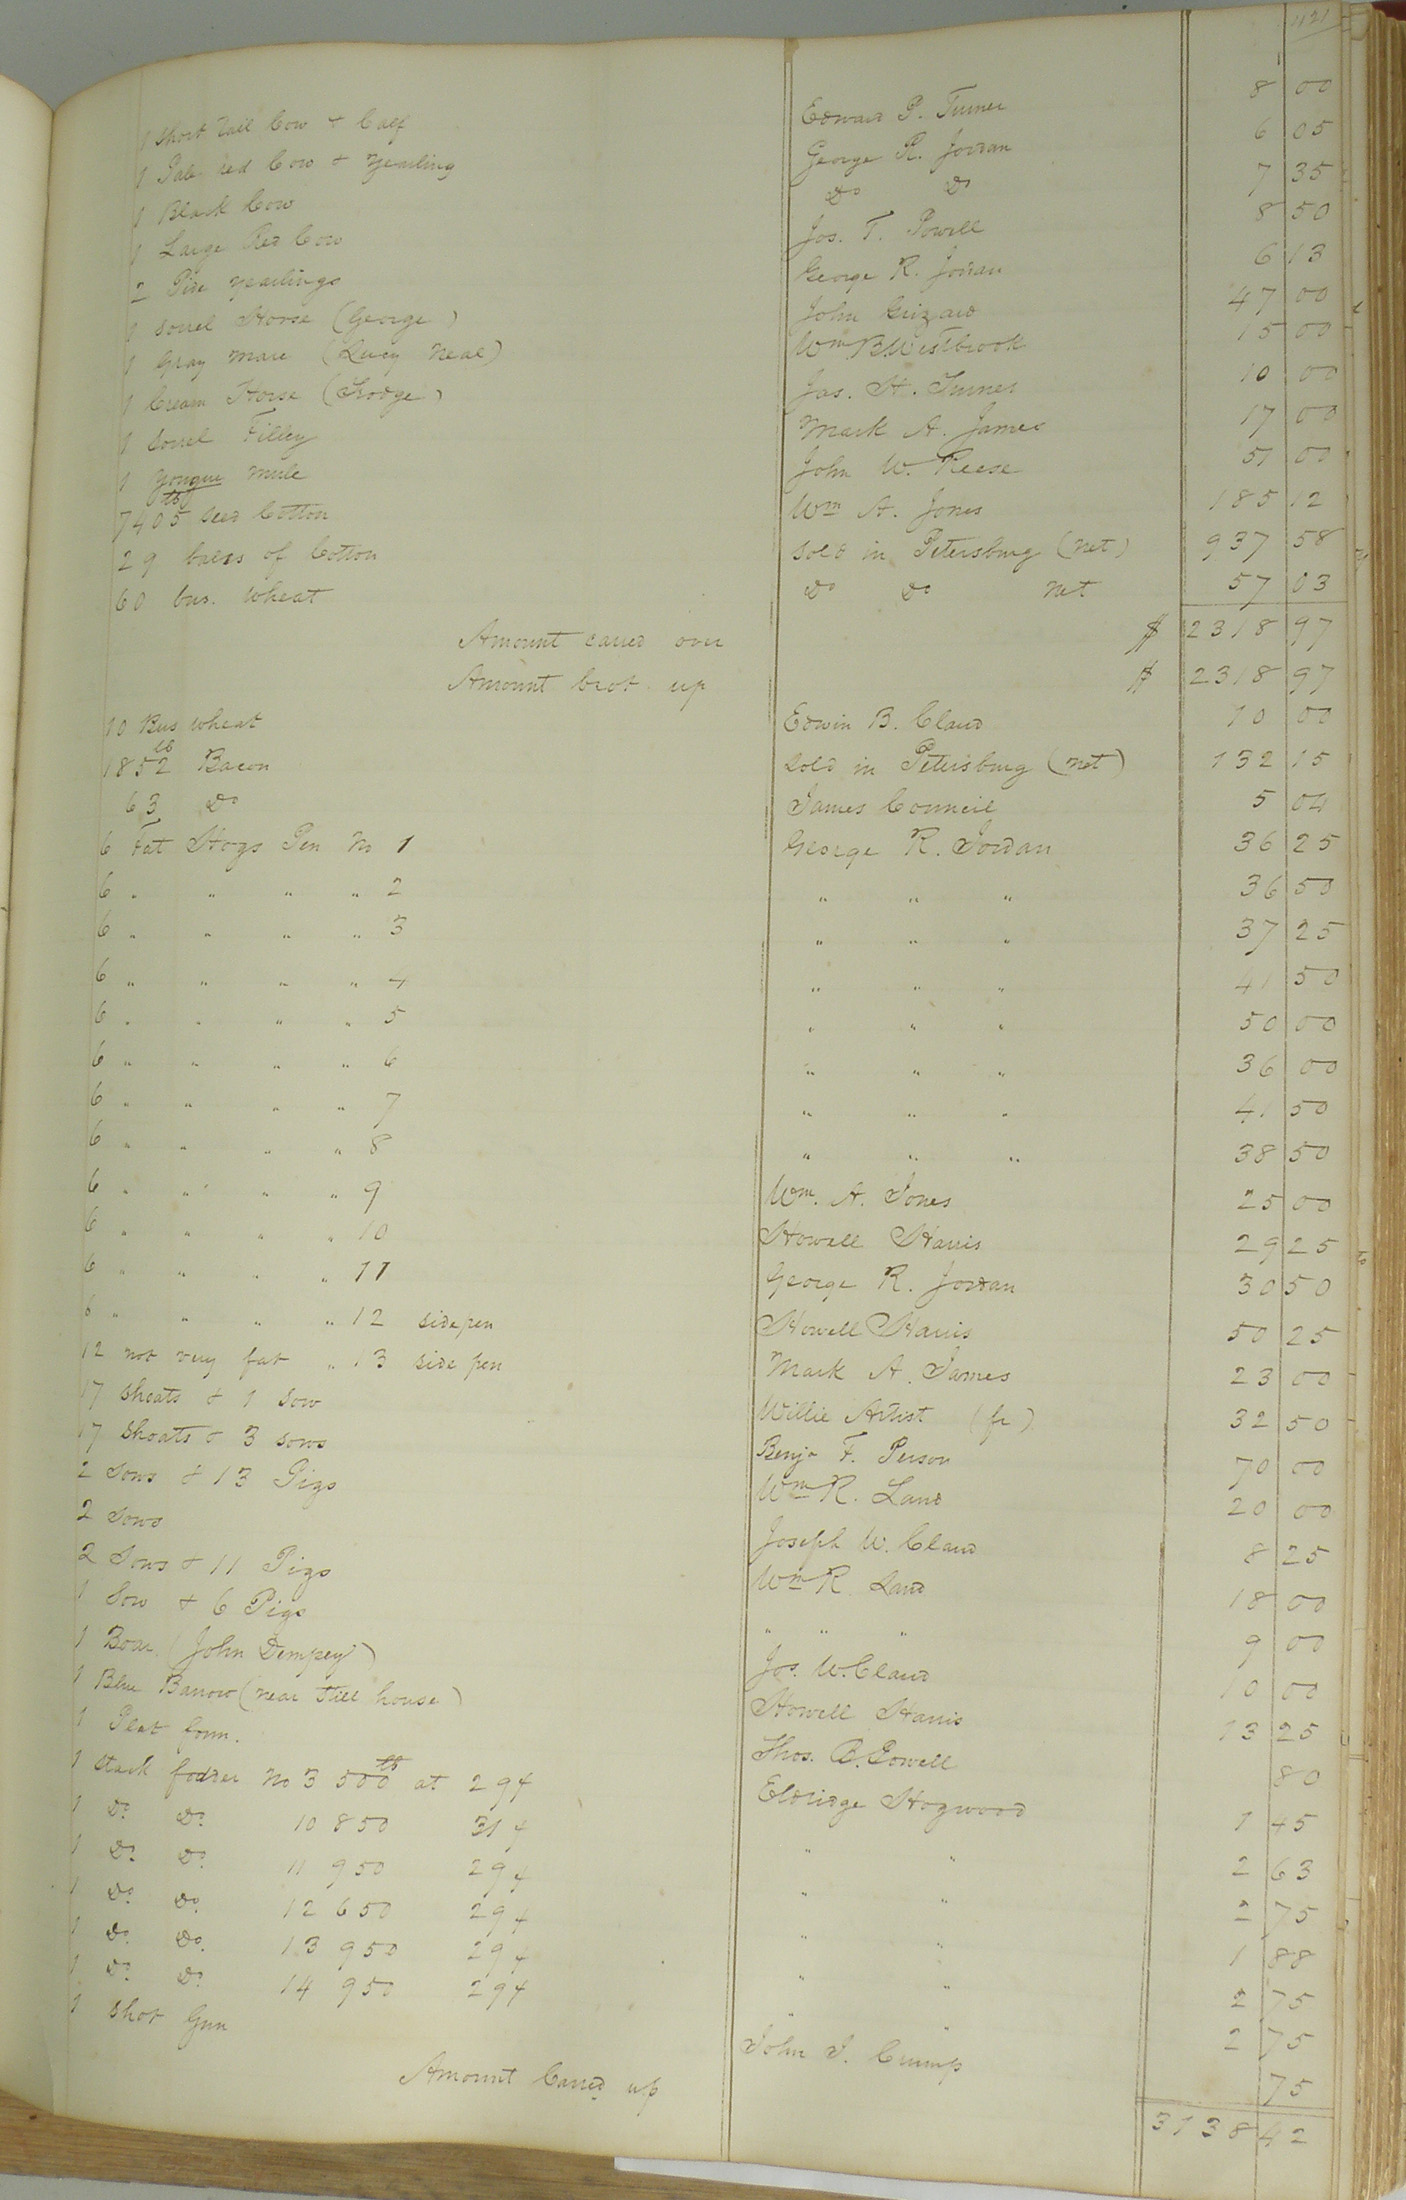 1121
1 Short Tail Cow & Calf Edward P. Turner 8 00
1 Pale red Cow & Yearling George R. Jordan 6 05
1 Black Cow Do Do 7 35
1 Large Red Cow Jos. T. Powell 8 50
2 Pide yearlings George R. Jordan 6 13
1 Sorrel Horse (George) John Grizard 47 00
1 Gray Mare (Lucy Neal) Wm. B. Westbrook 15 00
1 Cream Horse (Dodge) Jas. H. Turner 10 00
1 Sorrel Filley Mark A. James 17 00
1 yongue mule John W. Reese 51 00
7405 lbs seed Cotton Wm A. Jones 185 12
29 bales of Cotton Sold in Petersburg (net) 937 58
60 bus. Wheat Do Do net 57 03
Amount carred over $ 2318 97
Amount brot. up $ 2318 97
10 Bus wheat Edwin B. Claud 10 00
1852 lb Bacon Sold in Petersburg (net) 132 15
63 Do James Council 5 04
6 Fat Hogs Pen No 1 George R. Jordan 36 25
6 " " " " 2 " " " 36 50
6 " " " " 3 " " " 37 25
6 " " " " 4 " " " 41 50
6 " " " " 5 " " " 50 00
6 " " " " 6 " " " 36 00
6 " " " " 7 " " " 41 50
6 " " " " 8 " " " 38 50
6 " " " " 9 Wm. A. Jones 25 00
6 " " " " 10 Howell Harris 29 25
6 " " " " 11 George R. Jordan 30 50
6 " " " " 12 side pen Howell Harris 50 25
12 not very fat " 13 side pen Mark A. James 23 00
17 Shoats & 1 Sow Willie Artist (fr) 32 50
17 Shoats & 3 sows Benja F. Person 70 00
2 Sows & 13 Pigs Wm R. Land 20 00
2 Sows Joseph W. Claud 8 25
2 Sows & 11 Pigs Wm R. Land 18 00
1 Sow & 6 Pigs " " " 9 00
1 Boar (John Dempey) Jos. W. Claud 10 00
1 Blue Barrow (near Still house) Howell Harris 13 25
1 Plat form. Thos. B. Powell 80
1 Stack fodder No 3 500 lb at 29¢ Eldridge Hogwood 1 45
1 Do. Do. 10 850 31¢ " " 2 63
1 Do. Do. 11 950 29¢ " " 2 75
1 Do. Do. 12 650 29¢ " " 1 88
1 Do. Do. 13 950 29¢ " " 2 75
1 Do. Do. 14 950 29¢ " " 2 75
1 Shot Gun John J. Crump 75
Amount Carred up 3138 42